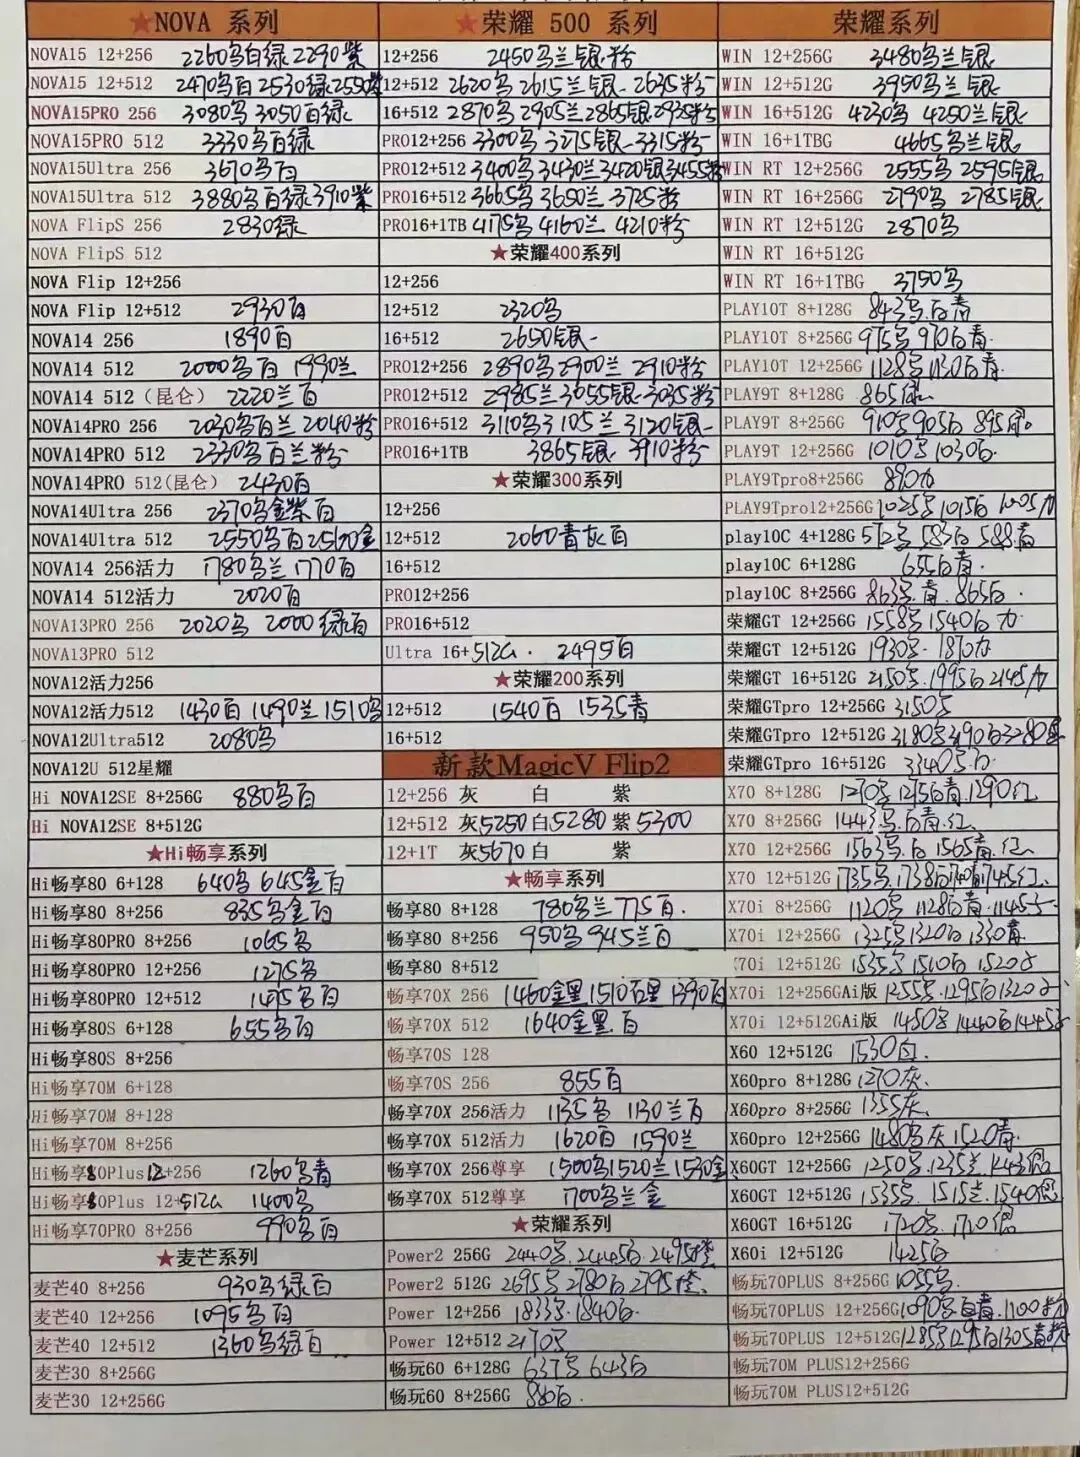 ★NOVA 系列
NOVA15 12+256 2260乌白绿 2290紫
NOVA15 12+512 2470乌白 2530绿 2550紫
NOVA15PRO 256 3080乌 3050白绿
NOVA15PRO 512 3330乌白绿
NOVA15Ultra 256 3670乌白
NOVA15Ultra 512 3880乌白绿 3910紫
NOVA FlipS 256 2830绿
NOVA FlipS 512
NOVA Flip 12+256
NOVA Flip 12+512 2930白
NOVA14 256 1890白
NOVA14 512 2000乌白 1990兰
NOVA14 512（昆仑） 2220兰白
NOVA14PRO 256 2030乌白兰 2040粉
NOVA14PRO 512 2330乌白兰粉
NOVA14PRO 512(昆仑) 2430白
NOVA14Ultra 256 2370乌金紫白
NOVA14Ultra 512 2550乌白 金
NOVA14 256活力 1780乌兰 1770白
NOVA14 512活力 2020白
NOVA13PRO 256 2020乌 2000绿白
NOVA13PRO 512
NOVA12活力256
NOVA12活力512 1430白 1490兰 1510乌
NOVA12Ultra512 2080乌
NOVA12U 512星耀
Hi NOVA12SE 8+256G 880乌白
Hi NOVA12SE 8+512G
★Hi畅享系列
Hi畅享80 6+128 640乌 645金白
Hi畅享80 8+256 835乌金白
Hi畅享80PRO 8+256 1065乌
Hi畅享80PRO 12+256 1275乌
Hi畅享80PRO 12+512 1495乌白
Hi畅享80S 6+128 655乌白
Hi畅享80S 8+256
Hi畅享70M 6+128
Hi畅享70M 8+128
Hi畅享70M 8+256
Hi畅享80Plus12+256 1260乌青
Hi畅享80Plus 12+512G 1400乌
Hi畅享70PRO 8+256 990乌白
★麦芒系列
麦芒40 8+256 930乌绿白
麦芒40 12+256 1095乌白
麦芒40 12+512 1360乌绿白
麦芒30 8+256G
麦芒30 12+256G
★荣耀 500 系列
12+256 2450乌兰银粉
12+512 2620乌 2615兰银 2635粉
16+512 2870乌 2905兰 2865银 2935粉
PRO12+256 3300乌 3275银 3315粉
PRO12+512 3400乌 3430兰 3420银 3455粉
PRO16+512 3665乌 3650兰 3725粉
PRO16+1TB 4175乌 4160兰 4210粉
★荣耀400系列
12+256
12+512 2320乌
16+512 2650银
PRO12+256 2890乌 2900兰 2910粉
PRO12+512 2985兰 3055银 3035粉
PRO16+512 3110乌 3105兰 3120银
PRO16+1TB 3865银 3910粉
★荣耀300系列
12+256
12+512 2060青灰白
16+512
PRO12+256
PRO16+512
Ultra 16+512G 2495白
★荣耀200系列
12+512 1540白 1535青
16+512
新款MagicV Flip2
12+256 灰 白 紫
12+512 灰5250 白5280 紫5300
12+1T 灰5670 白 紫
★畅享系列
畅享80 8+128 780乌兰 775白
畅享80 8+256 950乌 945兰白
畅享80 8+512
畅享70X 256 1460金黑 1510白黑 1390白
畅享70X 512 1640金黑.白
畅享70S 128
畅享70S 256 855白
畅享70X 256活力 1135乌 1130兰白
畅享70X 512活力 1620白 1590兰
畅享70X 256尊享 1500乌 1520兰 1530金
畅享70X 512尊享 1700乌兰金
★荣耀系列
Power2 256G 2440乌. 2445白 2495橙
Power2 512G 2695乌 2780白 2795橙
Power 12+256 1833乌. 1840白
Power 12+512 2170乌
畅玩60 6+128G 637乌 643白
畅玩60 8+256G 880白.
荣耀系列
WIN 12+256G 3480乌兰银
WIN 12+512G 3950乌兰银
WIN 16+512G 4230乌 4250兰银
WIN 16+1TBG 4665乌兰银
WIN RT 12+256G 2555乌 2595银
WIN RT 16+256G 2790乌 2785银
WIN RT 12+512G 2870乌
WIN RT 16+512G
WIN RT 16+1TBG 3750乌
PLAY10T 8+128G 843乌.白青
PLAY10T 8+256G 975乌 970白青
PLAY10T 12+256G 1128乌 1130白青
PLAY9T 8+128G 865绿
PLAY9T 8+256G 910乌 905白 895绿
PLAY9T 12+256G 1010乌 1030白
PLAY9Tpro8+256G 890力
PLAY9Tpro12+256G 1025乌 1015白 1005力
play10C 4+128G 572乌 583白 588青
play10C 6+128G 655白青
play10C 8+256G 863乌.青.865白
荣耀GT 12+256G 1558乌 1540白力
荣耀GT 12+512G 1930乌. 1870力
荣耀GT 16+512G 2150乌.1995白 2145力
荣耀GTpro 12+256G 3150乌
荣耀GTpro 12+512G 3180乌 3190白
荣耀GTpro 16+512G 3340乌.白
X70 8+128G 1270乌 1275白青.1290红
X70 8+256G 1443乌.白青.红
X70 12+256G 1563乌.白 1565青.红
X70 12+512G 1735乌.1738白 1745红
X70i 8+256G 1120乌 1128白青.1145
X70i 12+256G 1325乌 1320白 1330青
X70i 12+512G 1535乌 1510白 1520
X70i 12+256GAi版 1255乌.1295白 1320
X70i 12+512GAi版 1450乌 1440白 1445
X60 12+512G 1530白.
X60pro 8+128G 1270灰.
X60pro 8+256G 1355灰.
X60pro 12+256G 1480乌灰 1520青
X60GT 12+256G 1250乌.1235兰.
X60GT 12+512G 1535乌. 1515兰.1540
X60GT 16+512G 1720乌.1710
X60i 12+512G 1425白
畅玩70PLUS 8+256G 1055乌.
畅玩70PLUS 12+256G 1090乌白青.1100粉
畅玩70PLUS 12+512G 1285乌 1295白 1305青粉
畅玩70M PLUS12+256G
畅玩70M PLUS12+512G